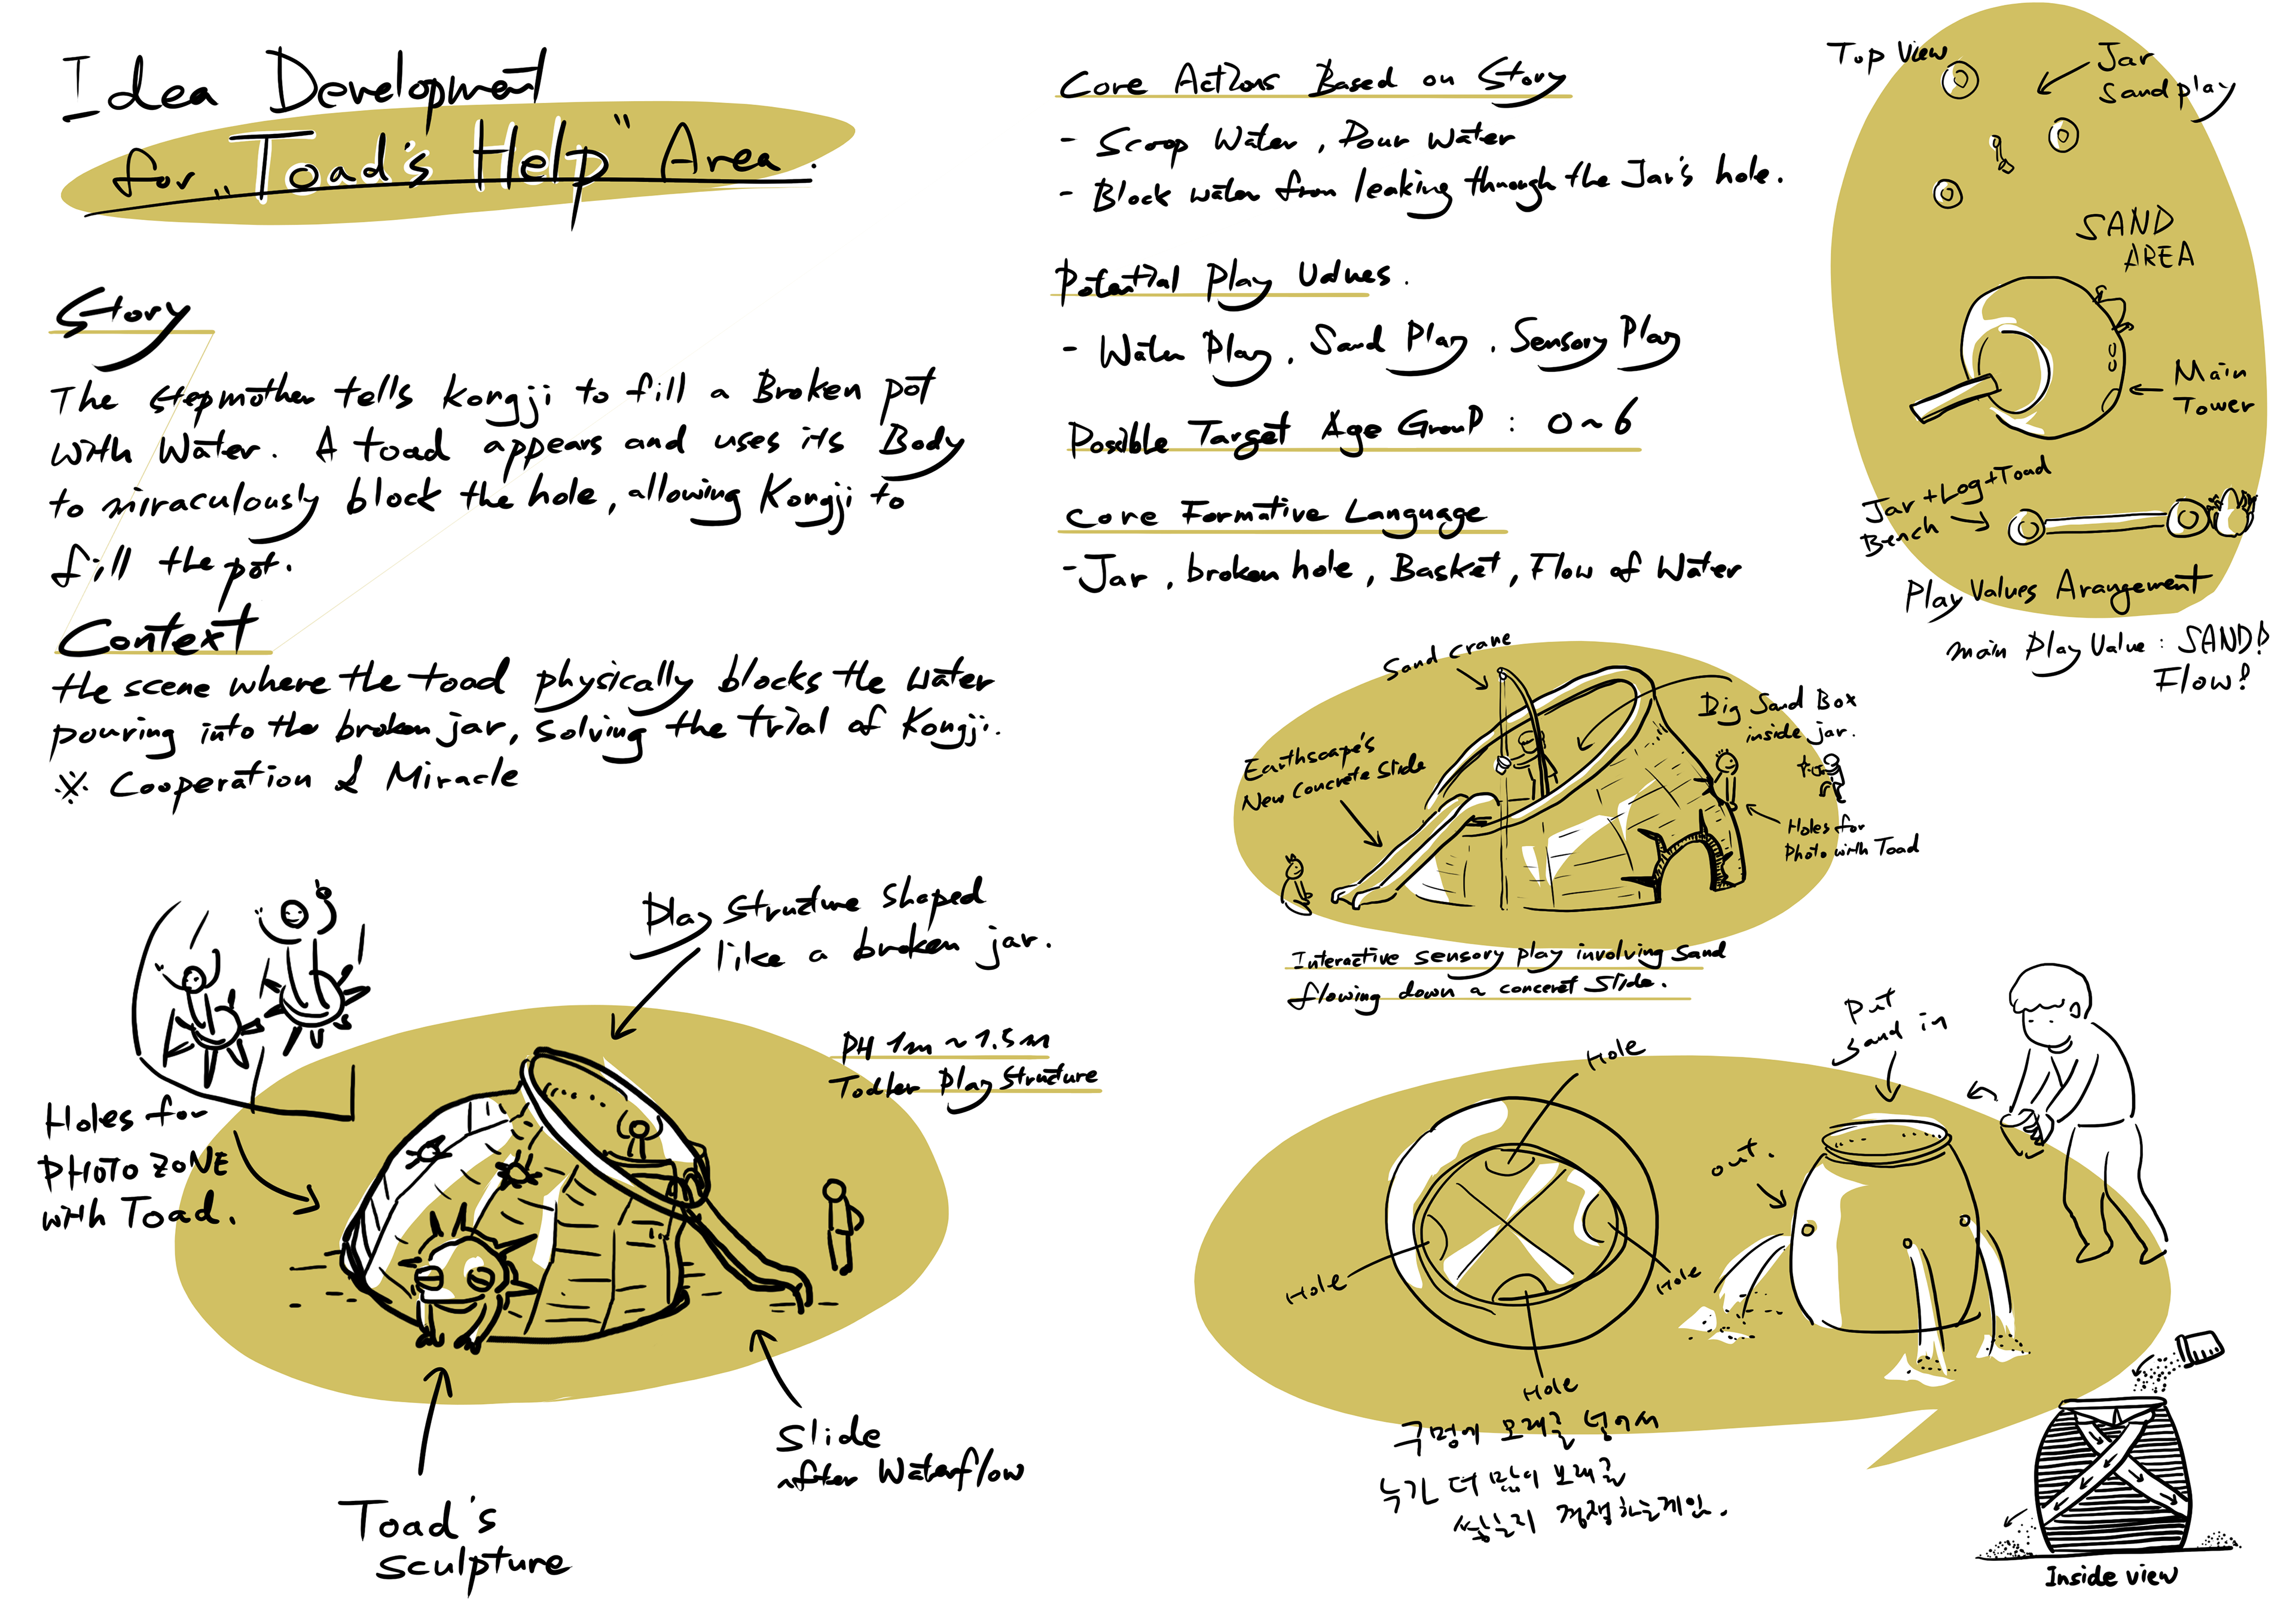 Idea Development
for "Toad's Help" Area.
Story
The stepmother tells Kongji to fill a Broken pot
with Water. A toad appears and uses its Body
to miraculously block the hole, allowing Kongji to
fill the pot.
Context
the scene where the toad physically blocks the water
pouring into the broken jar, solving the trial of Kongji.
※ Cooperation & Miracle
Holes for
PHOTO ZONE
with Toad.
Play Structure shaped
like a broken jar.
PH 1m ~ 1.5m
Todler Play Structure
Slide
after Waterflow
Toad's
sculpture
Core Actions Based on Story
- Scoop Water, Pour Water
- Block water from leaking through the Jar's hole.
Potential Play Values.
- Water Play, Sand Play, Sensory Play
Possible Target Age Group : 0~6
Core Formative Language
- Jar, broken hole, Basket, Flow of Water
Top View
Jar
Sand play
SAND
AREA
Main
Tower
Jar+Log+Toad
Bench
Play Values Arangement
main Play Value : SAND!
Flow!
Sand Crane
Big Sand Box
inside jar.
Earthscape's
New Concrete Slide
Holes for
Photo with Toad
Interactive sensory play involving Sand
flowing down a conceret Slide.
Hole
Hole
Hole
Hole
Put
Sand in
out.
구멍에 모래를 넣어서
누가 더 많이 모래를
쌓는지 경쟁하는게임.
Inside view